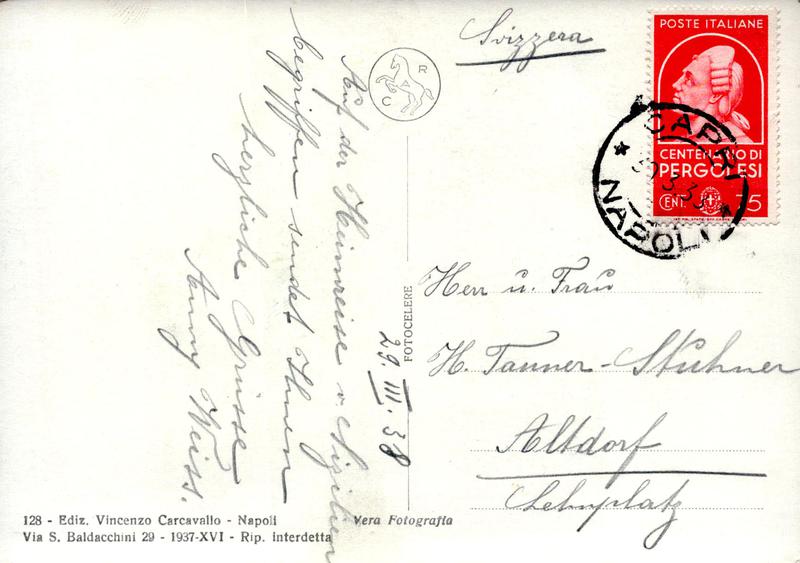 Auf der Heimreise v. Sizilien
begriffen sendet Ihnen
herzliche Grüsse
Anny Weiss.
29. III. 38
Svizzera
R
C A
POSTE ITALIANE
CENTENARIO DI
PERGOLESI
CENT. 75
CAPRI
30.3.38
NAPOLI
Herr u. Frau
H. Tanner-Stuhner
Altdorf
Lehnplatz
FOTOCELERE
128 - Ediz. Vincenzo Carcavallo - Napoli
Via S. Baldacchini 29 - 1937-XVI - Rip. interdetta
Vera Fotografia